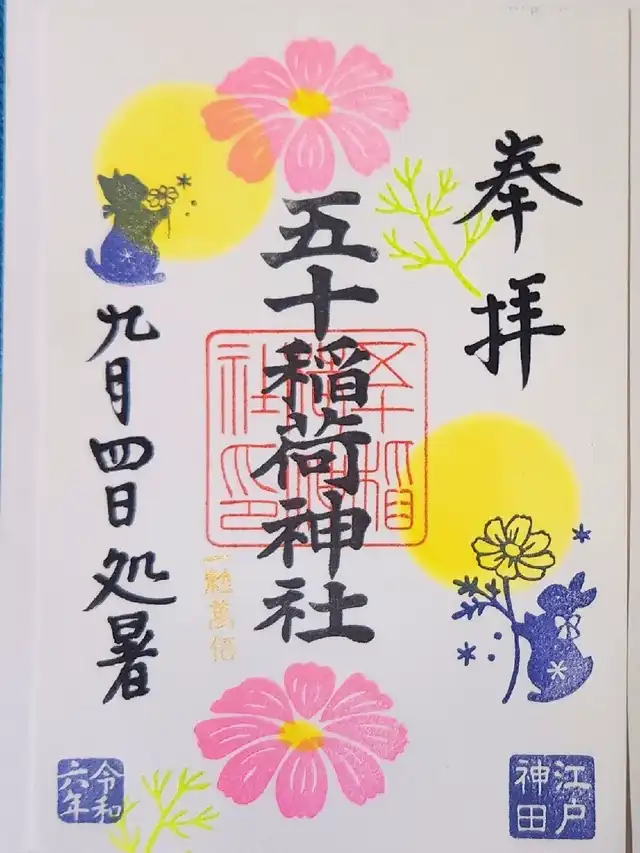 奉拝
江戸
神田
五十稲荷神社
一粒萬倍
九月四日処暑
令和
六年